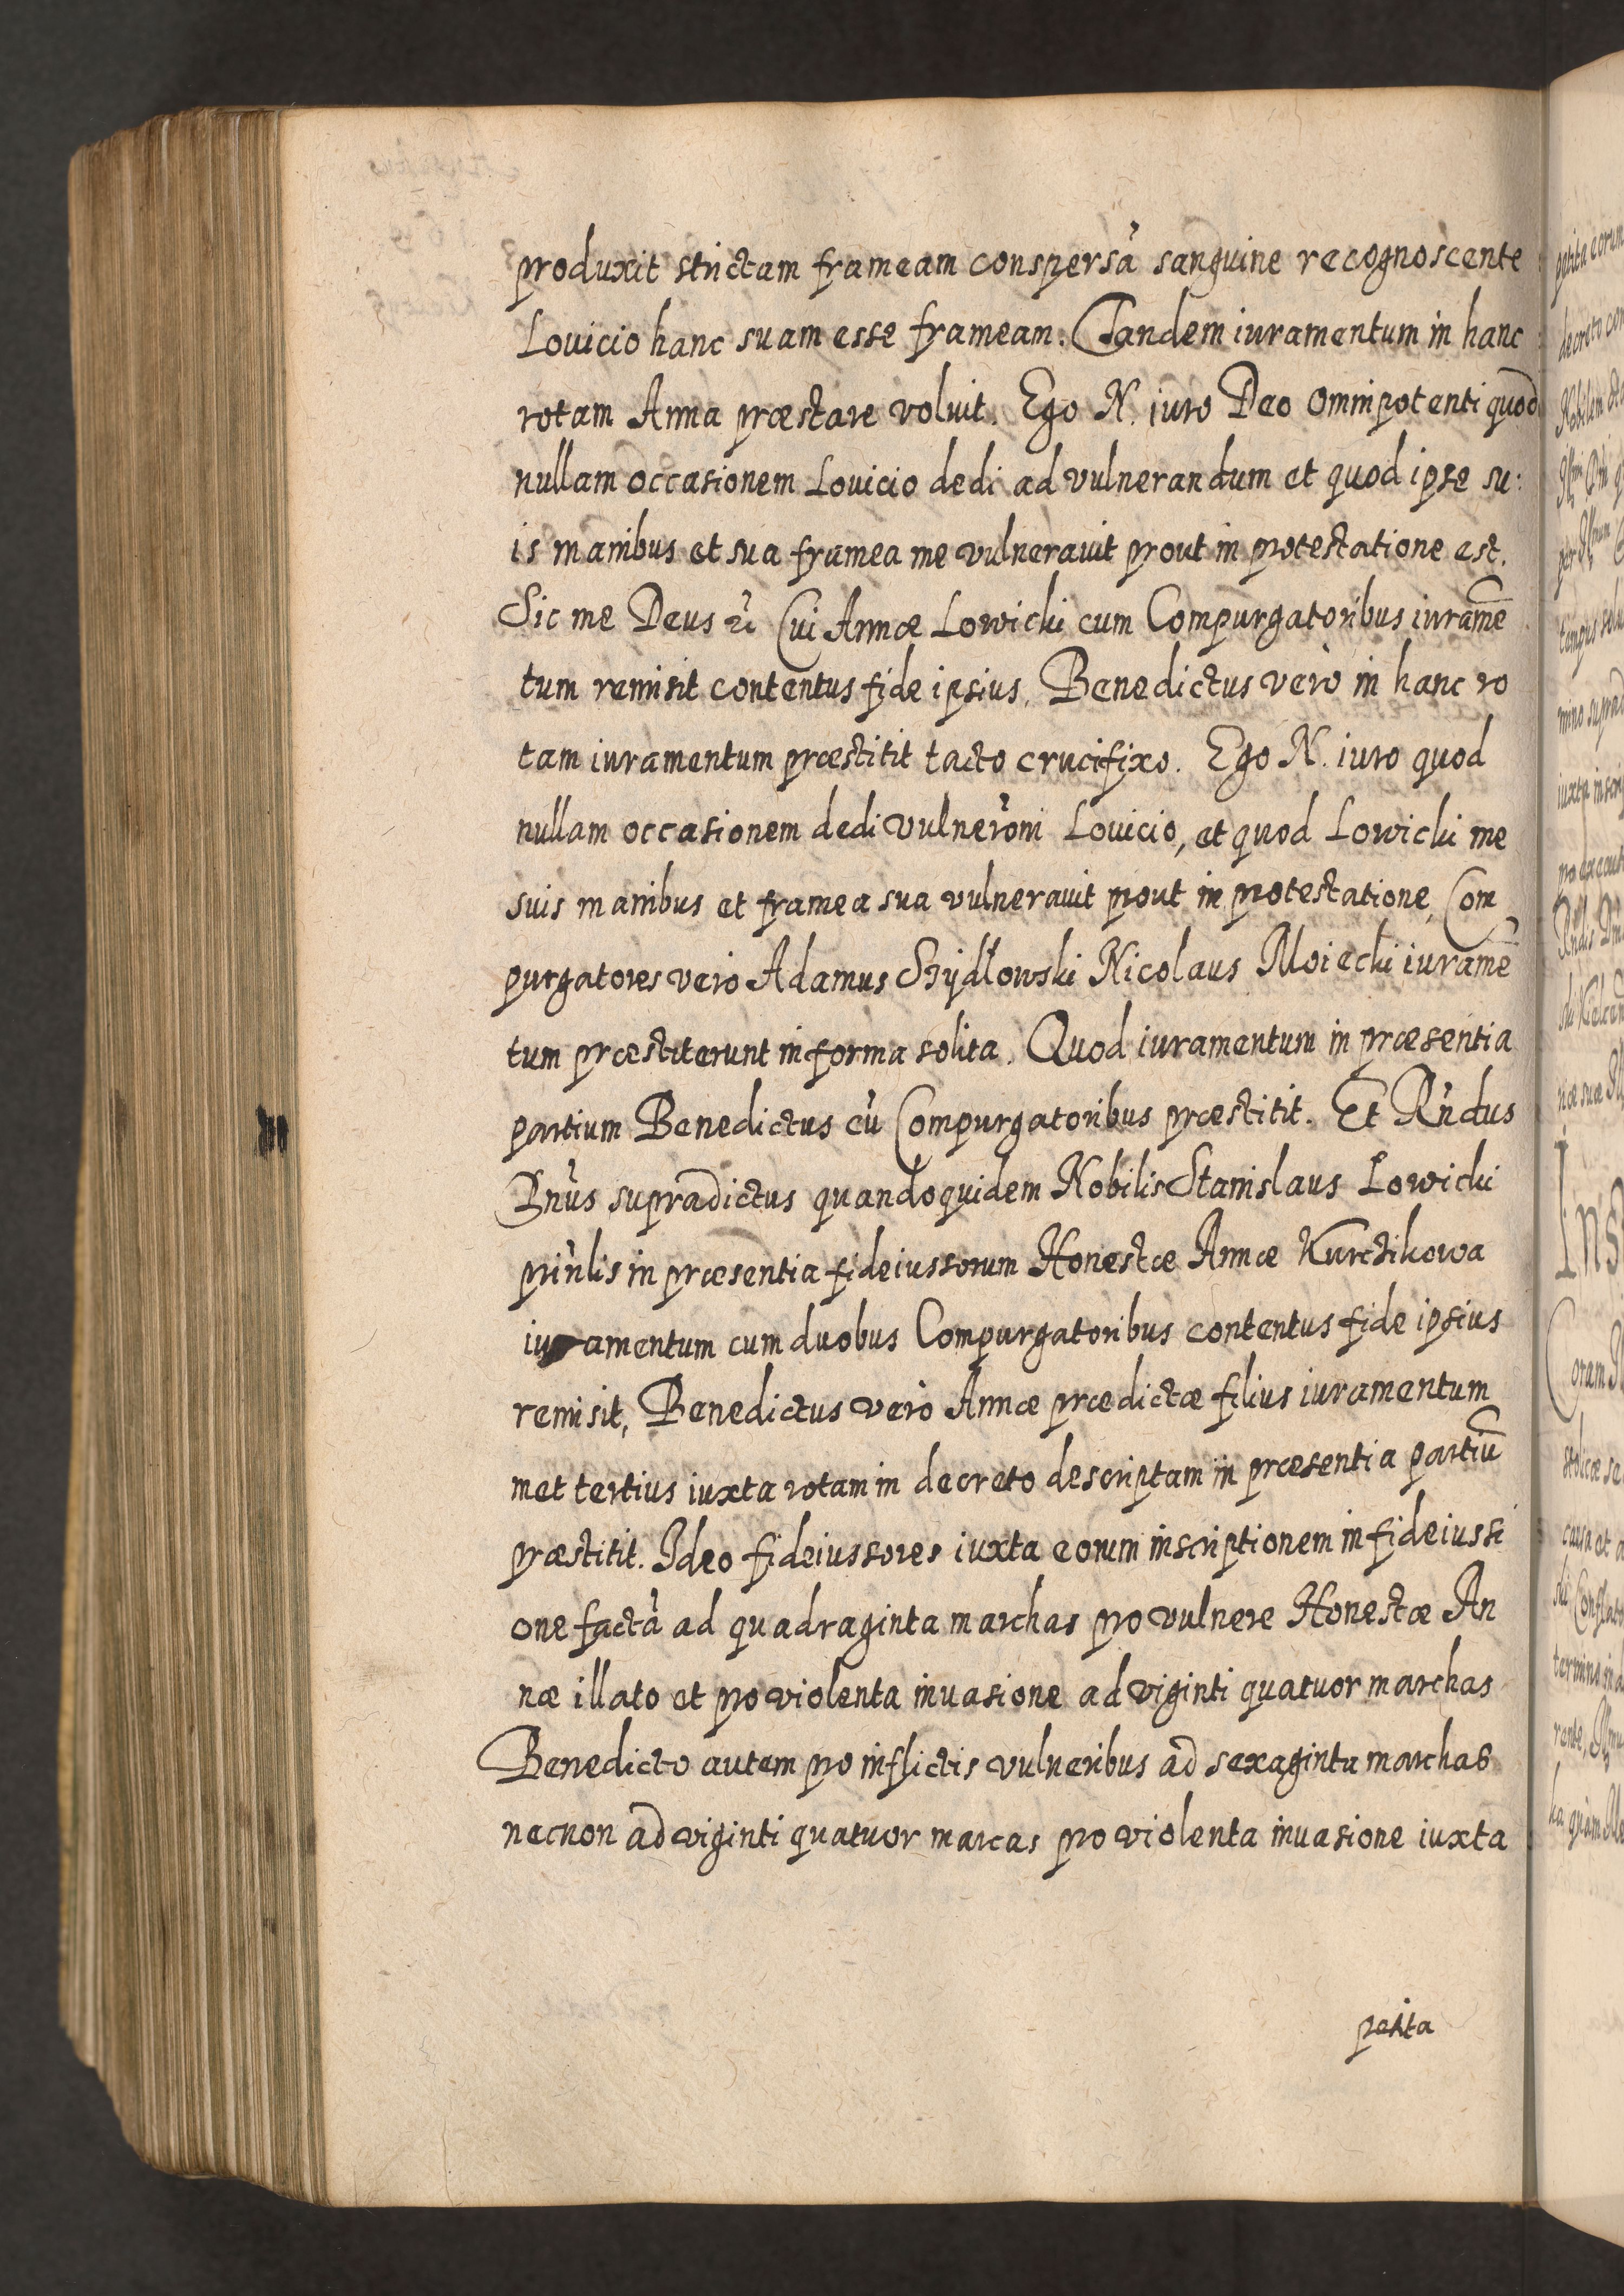 produxit strictam frameam conspersa̓ sanguine recognoscente
Louicio hanc suam esse frameam. Tandem iuramentum in hanc
rotam Anna præstare voluit. Ego N. iuro Deo Omnipotenti quod
nullam occasionem Louicio dedi ad vulnerandum et quod ipse su:
is manibus et sua framea me vulnerauit prout in protestatione est.
Sic me Deus Cui Annæ Lowicki cum Compurgatoribus iuramē
tum remisit contentus fide ipsius. Benedictus verò in hanc ro
tam iuramentum præstitit tacto crucifixo. Ego N. iuro quod
nullam occasionem dedi vulnero̓ni Louicio, et quod Lowicki me
suis manibus et framea sua vulnerauit prout in protestatione, Com
purgatores vero Adamus Szÿdłowski Nicolaus Moiecki iuramē
tum præstiterunt in forma solita. Quod iuramentum in præsentia
partium Benedictus cu̓ Compurgatoribus præstitit. Et Rn̓dus
Dn̓us supradictus quandoquidem Nobilis Stanislaus Lowicki
prin̓lis in præsentia fideiussorum Honestæ Annæ Kurczikowa
iuramentum cum duobus Compurgatoribus contentus fide ipsius
remisit, Benedictus verò Annæ prædictæ filius iuramentum
met tertius iuxta rotam in decreto descriptam in præsentia partiū
præstitit. Ideo fideiussores iuxta eorum inscriptionem in fideiussi
one facta̓ ad quadraginta marchas pro vulnere Honestæ An
næ illato et pro violenta inuasione ad viginti quatuor marchas
Benedicto autem pro inflictis vulneribus ad sexaginta marchas
necnon ad viginti quatuor marcas pro violenta inuasione iuxta
petita